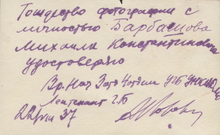 Тождество фотографии с
личностью Барбашова
Михаила Константинович
удостоверяю
Вр. Нач
Лейтенант ГБ
22/VIII 37